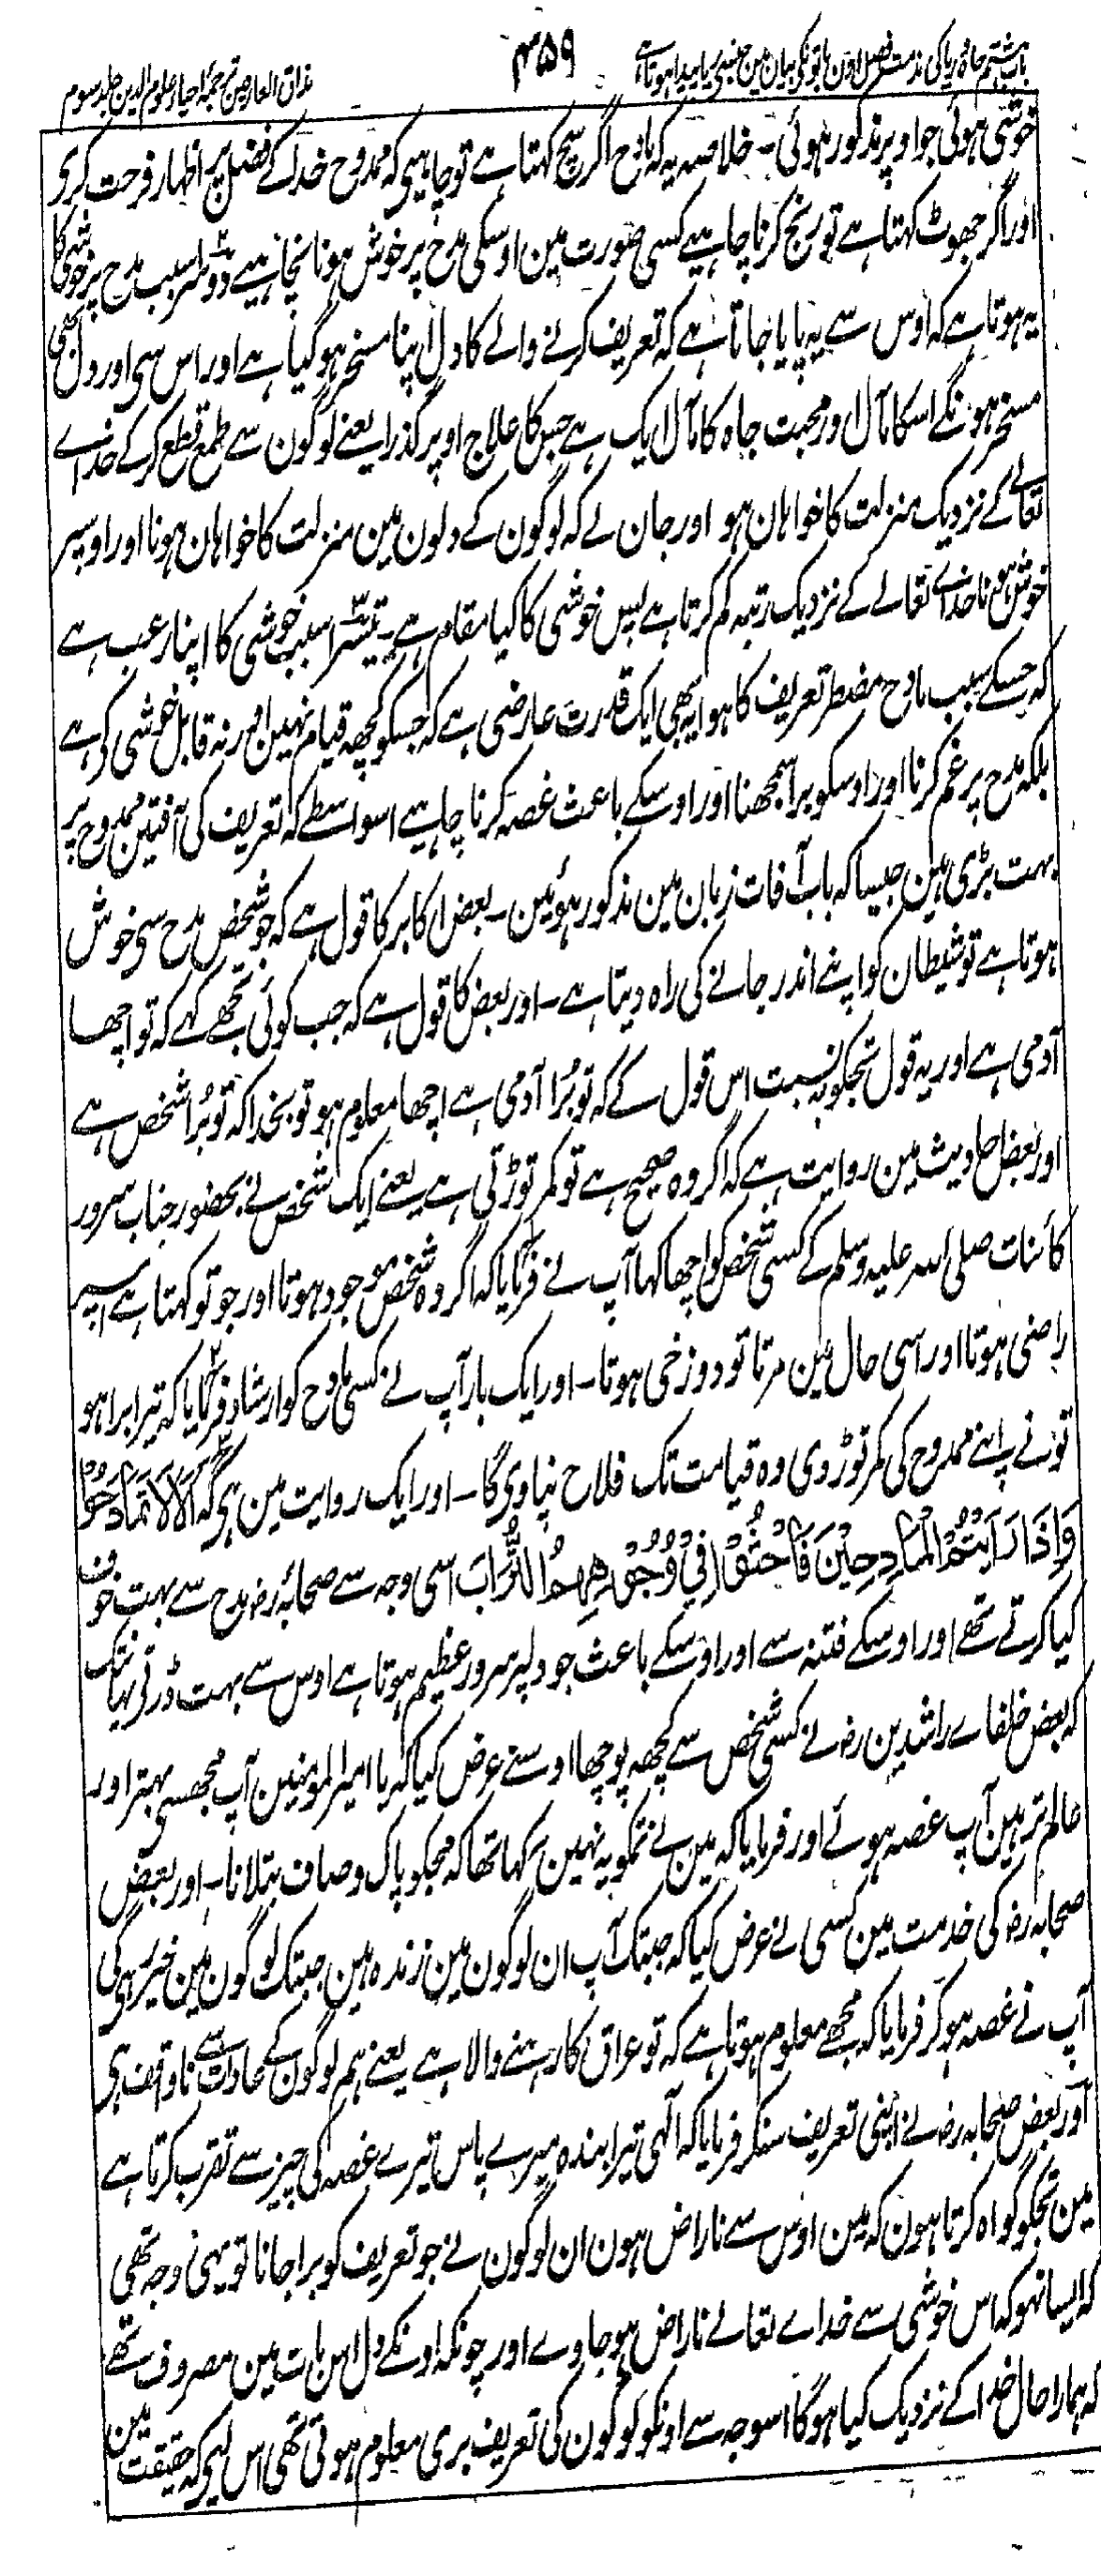 باب ہشتم جاہ و ریا کی مذمت فصل اون باتونکی بیان مین جنسی ریا پیدا ہوتا ہے
۴۵۹
مذاق العارفین ترجمۂ احیاء علوم الدین جلد سوم
خوشی ہوئی جو اوپر مذکور ہوئی۔ خلاصہ یہ کہ مادح اگر سچ کہتا ہے تو چاہیی کہ ممدوح خدا کے فضل پر اظہار فرحت کری
اور اگر جھوٹ کہتا ہے تو رنج کرنا چاہیے کسی صورت مین اوسکی مدح پر خوش ہونا نچاہیے دوسرا سبب مدح پر خوشی کا
یہ ہوتا ہے کہ اوس سے یہ پایا جاتا ہے کہ تعریف کرنے والے کا دل اپنا مسخر ہو گیا ہے اور اس سی اور دل بھی
مسخر ہونگے اسکا مآل اور محبت جاہ کا مآل ایک ہے جس کا علاج اوپر گذرا یعنے لوگون سے طمع قطع کر کے خداے
تعالے کے نزدیک منزلت کا خواہان ہو اور جان لے کہ لوگون کے دلون مین منزلت کا خواہان ہونا اور اوسپر
خوش ہونا خداے تعالے کے نزدیک رتبہ کم کرتا ہے پس خوشی کا کیا مقام ہے۔ تیسرا سبب خوشی کا اپنا رعب ہے
کہ جسکے سبب مادح مضطر تعریف کا ہوا یہ بھی ایک قدرت عارضی ہے کہ جسکو کچھ قیام نہین اور نہ قابل خوشی کی ہے
بلکہ مدح پر غم کرنا اور اوسکو برا سمجھنا اور اوسکے باعث غصہ کرنا چاہیے اسواسطے کہ تعریف کی آفتین ممدوح پر
بہت بڑی ہین جیسا کہ باب آفات زبان مین مذکور ہوئین۔ بعض اکابر کا قول ہے کہ جو شخص مدح سی خوش
ہوتا ہے تو شیطان کو اپنے اندر جانے کی راہ دیتا ہے۔ اور بعض کا قول ہے کہ جب کوئی تجھے کہے کہ تو اچھا
آدمی ہے اور یہ قول تجکو بہ نسبت اس قول کے کہ تو بُرا آدمی ہے اچھا معلوم ہو تو بخدا کہ تو بُرا شخص ہے
اور بعض احادیث مین روایت ہے کہ اگر وہ صحیح ہے تو کمر توڑتی ہے یعنے ایک شخص نے بحضور جناب سرور
کائنات صلی اللہ علیہ وسلم کے کسی شخص کو اچھا کہا آپ نے فرمایا کہ اگر وہ شخص موجود ہوتا اور جو تو کہتا ہے اسپر
راضی ہوتا اور اسی حال مین مرتا تو دوزخی ہوتا۔ اور ایک بار آپ نے کسی مادح کو ارشاد فرمایا کہ تیرا برا ہو
تونے اپنے ممدوح کی کمر توڑ دی وہ قیامت تک فلاح نپاوی گا۔ اور ایک روایت مین ہی کہ اَلَا لَا تَمَادَحُوْا
وَاِذَا رَاَیْتُمُ الْمَادِحِیْنَ فَاحْثُوْا فِیْ وُجُوْهِهِمُ التُّرَابَ اسی وجہ سے صحابہ رض مدح سے بہت خوف
کیا کرتے تھے اور اوسکے فتنہ سے اور اوسکے باعث جو دلپر سرور عظیم ہوتا ہے اوس سے بہت ڈرتی یہانتک
کہ بعض خلفاے راشدین رض نے کسی شخص سے کچھ پوچھا اوسنے عرض کیا کہ یا امیر المومنین آپ مجھسی بہتر اور
عالم تر ہین آپ غصہ ہوئے اور فرمایا کہ مین نے تمکو یہ نہین کہا تھا کہ مجکو پاک و صاف بتلانا۔ اور بعض
صحابہ رض کی خدمت مین کسی نے عرض کیا کہ جبتک آپ ان لوگون مین زندہ ہین جبتک لوگون مین خیر رہی گی
آپ نے غصہ ہو کر فرمایا کہ مجھے معلوم ہوتا ہے کہ تو عراق کا رہنے والا ہے یعنے ہم لوگون کے عادات سے ناواقف ہی
اور بعض صحابہ رض نے اپنی تعریف سنکر فرمایا کہ الٰہی تیرا بندہ میرے پاس تیرے غصہ کی چیز سے تقرب کرتا ہے
مین تجکو گواہ کرتا ہون کہ مین اوس سے ناراض ہون ان لوگون نے جو تعریف کو برا جانا تو یہی وجہ تھی
کہ ایسا نہو کہ اس خوشی سے خداے تعالے ناراض ہو جاوے اور چونکہ اونکے دل اس بات مین مصروف تھے
کہ ہمارا حال خدا کے نزدیک کیا ہوگا اسوجہ سے اونکو لوگون کی تعریف بری معلوم ہوتی تھی اس لیی کہ حقیقت مین